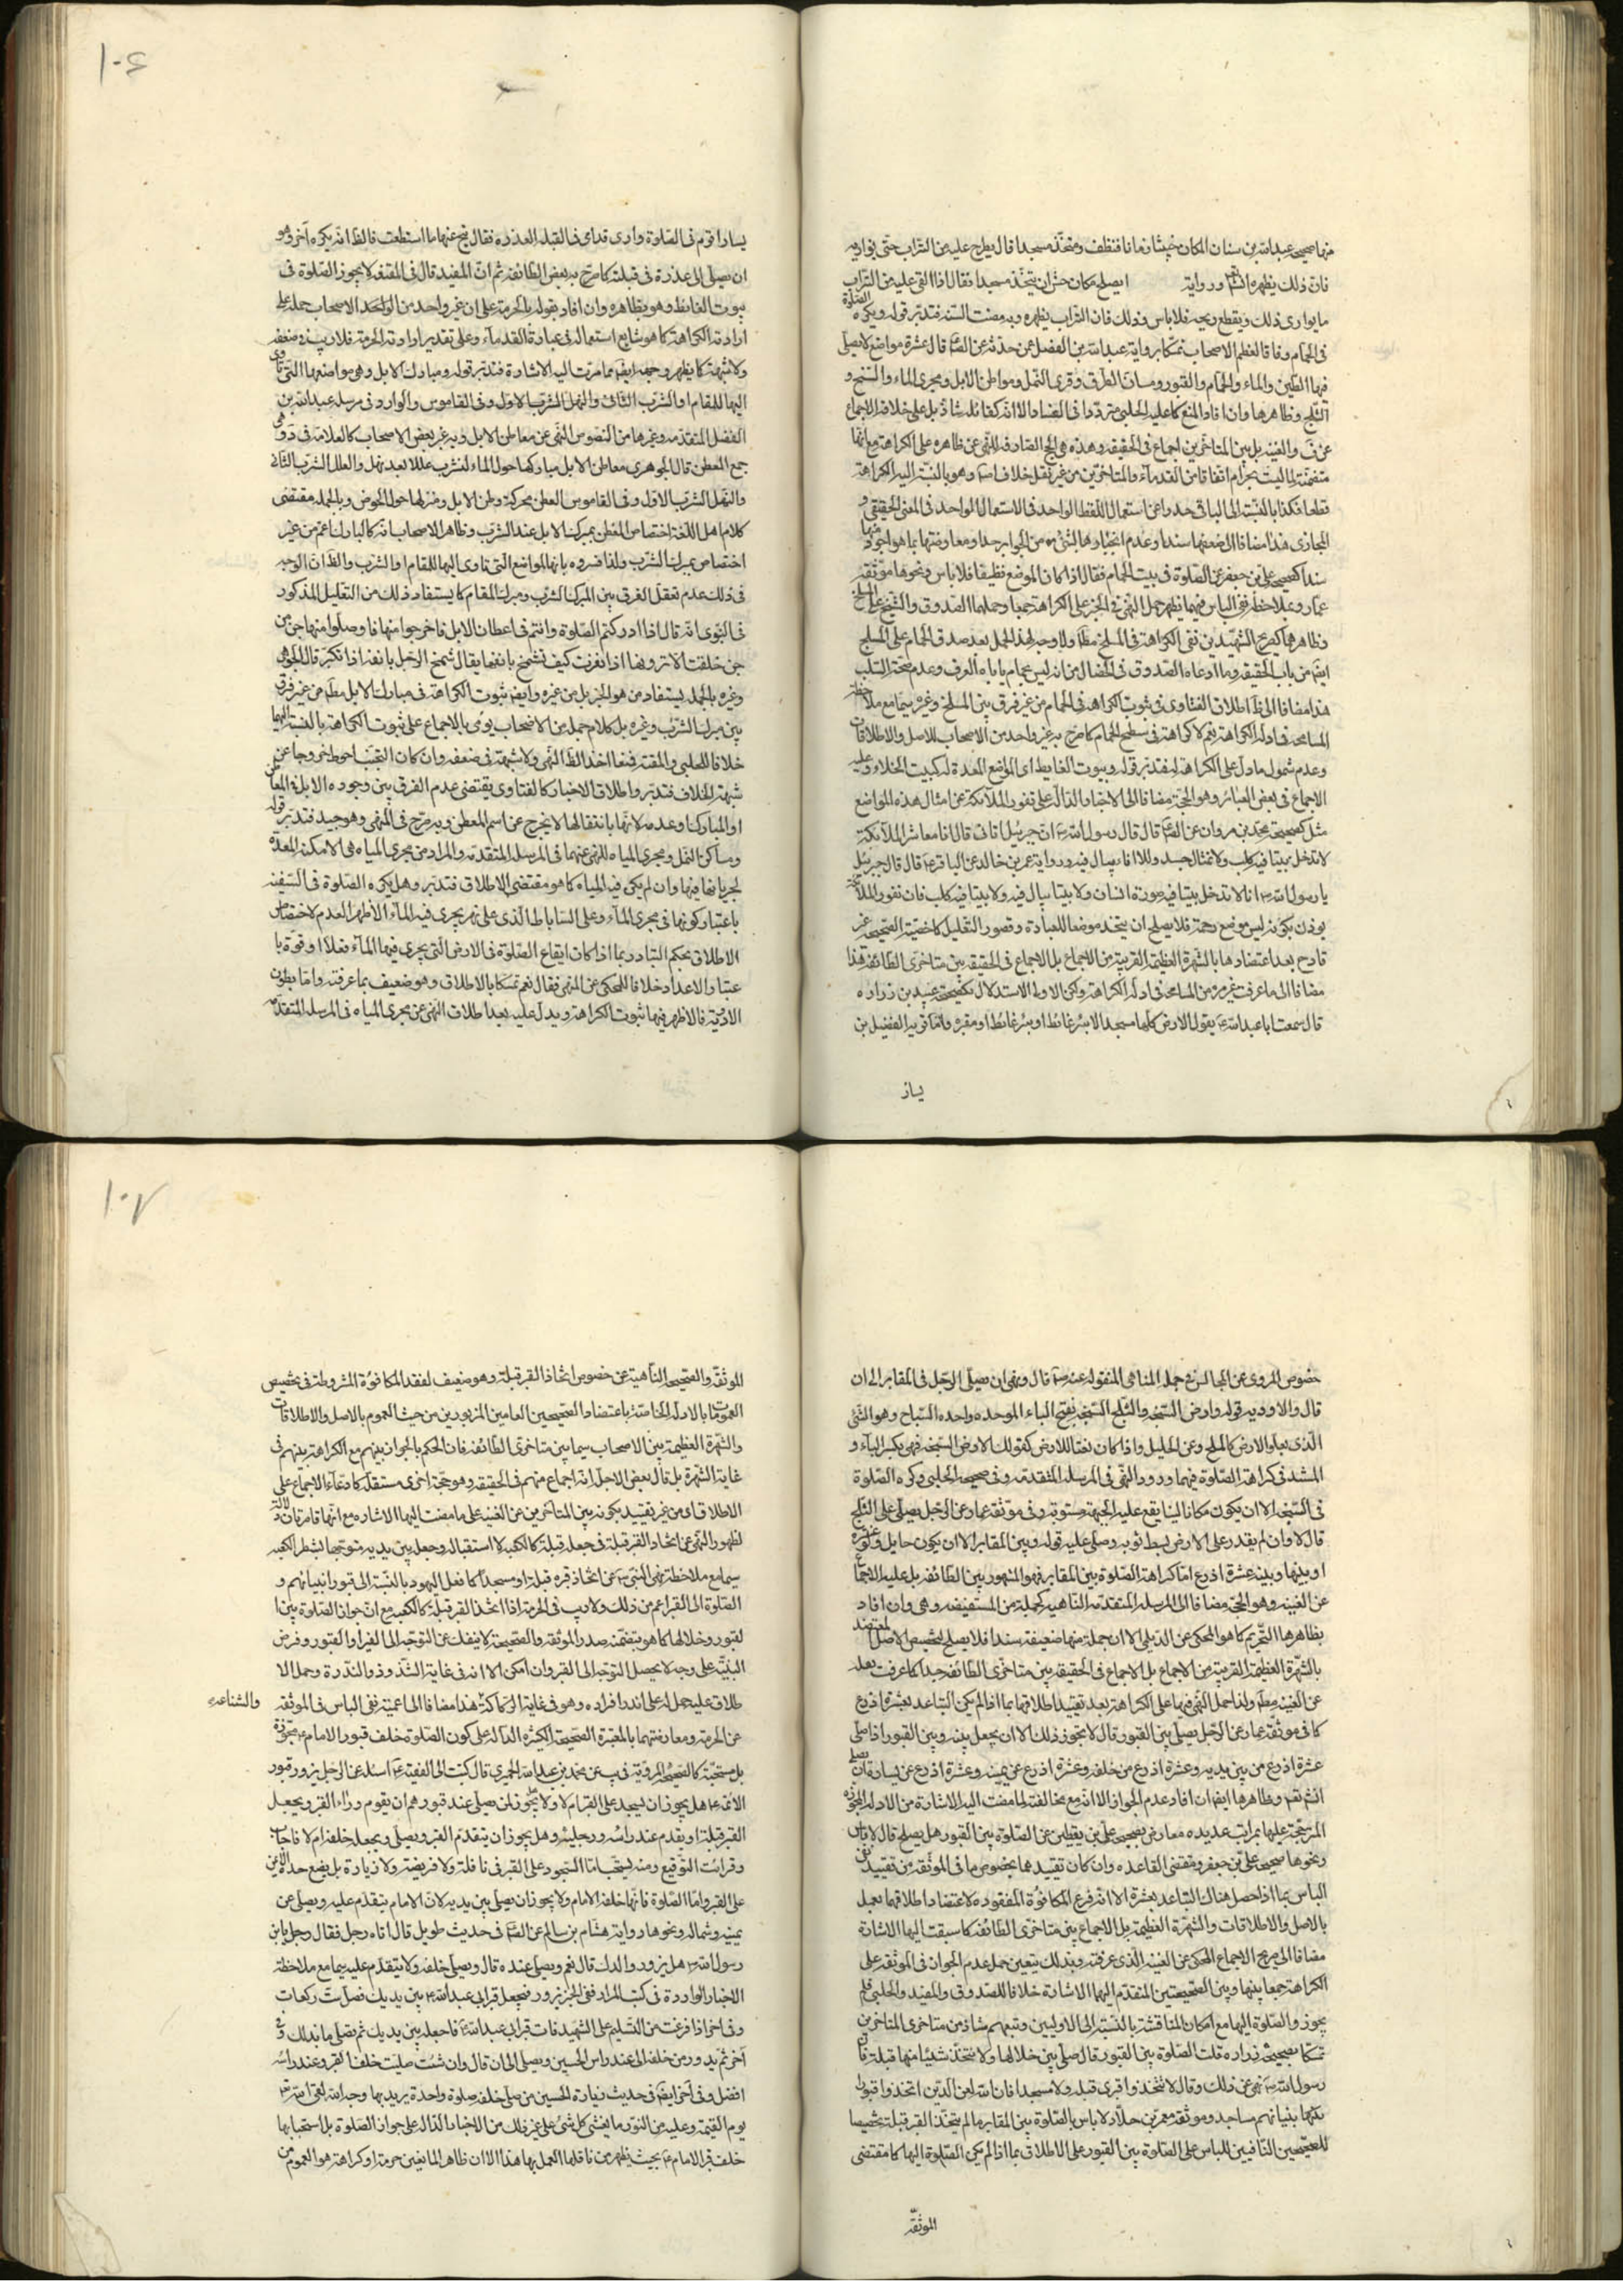 منها صحيحة عبد الله بن سنان المكان خبيثا زمانا فنظف ومتخذ مسجدا قال يطرح عليه من التراب حتى يواريه
فان ذلك يطهره انشاء ورواية ايصلح مكان حش ان يتخذ مسجدا فقال اذا القى عليه من التراب
ما يوارى ذلك ويقطع ريحه فلا باس وذلك فان التراب يطهره وبه مضت السنة فتدبر قوله ويكره الصلوة
فى الحمام وفاقا لمعظم الاصحاب تمسكا برواية عبد الله بن الفضل عمن حدثه عن الص قال عشرة مواضع لا يصلى
فيها الطين والماء والحمام والقبور ومسان الطرق وقرى النمل ومواطن الابل ومجرى الماء والسبخ و
الثلج وظاهرها وان افاد المنع كما عليه الحلبى مترددا فى الفساد الا انه كقائله شاذ بل على خلافه الاجماع
قطعا فكذا بالنسبة الى الباقى حذرا عن استعمال اللفظ الواحد فى الاستعمال الواحد فى المعنى الحقيقى و
سندا كصحيح على بن جعفر عن الصلوة فى بيت الحمام فقال اذا كان الموضع نظيفا فلا باس ونحوها موثقة
وعدم شمول ما دل على الكراهة له فتدبر قوله وبيوت الغايط اى المواضع المعدة له كبيت الخلاء وعليه
الاجماع فى بعض العبائر وهو الحجة مضافا الى الاخبار الدالة على نفور الملائكة عن امثال هذه المواضع
مثل كصحيحة محمد بن مروان عن الص قال قال رسول الله ص ان جبرئيل اتانى قال انا معاشر الملائكة
لا ندخل بيتا فيه كلب ولا تمثال جسد ولا اناء يبال فيه ورواية عمر بن خالد عن الباقر ع قال قال جبرئيل
يا رسول الله ص انا لا ندخل بيتا فيه صورة انسان ولا بيتا يبال فيه ولا بيتا فيه كلب فان نفور الملائكة
يوذن بكونه ليس موضع رحمة فلا يصلح ان يتخذ موضعا للعبادة وقصور التعليل كاخصية الصحيحة غير
قادح بعد اعتضادها بالشهرة العظيمة القريبة من الاجماع بل الاجماع فى الحقيقة بين متاخرى الطائفة هذا
مضافا الى ما عرفت غير مرة من المسامحة فى ادلة الكراهة ولكن الاولى الاستدلال بصحيحة عبيد بن زرارة
قال سمعت ابا عبد الله ع يقول الارض كلها مسجد الا بئر غائط او بئر غائط او مقبرة واما قرينة الفضيل بن
يسار
١٠٦
يسار اقوم فى الصلوة وارى قدامى فى القبلة العذرة فقال تنح عنها ما استطعت فالظ انه يكره آخر وهو
ان يصلى الى عذرة فى قبلته كما صرح به بعض الطائفة ثم ان المفيد قال فى المقنعة لا يجوز الصلوة فى
بيوت الغايط وهو بظاهره وان افاد بقوله بالحرمة على ان غير واحد من الاصحاب حمله على
ارادته الكراهة كما هو شايع استعماله فى عبارة القدماء وعلى تقدير ارادته الحرمة فلا ريب فى ضعفه
ولا شبهة كما يظهر وجهه ايضا مما مرت اليه الاشارة فتدبر قوله ومبارك الابل وهى مواضعها التى تاوى
اليها للمقام او الشرب الثانى والنهل الشرب الاول وفى القاموس والوارد فى مرسلة عبد الله بن
جمع المعطن قال الجوهرى معاطن الابل مباركها حول الماء لتشرب عللا بعد نهل والعلل الشرب الثانى
والنهل الشرب الاول وفى القاموس العطن محركة وطن الابل ومبركها حول الحوض وبالجملة مقتضى
كلام اهل اللغة اختصاص المعطن بمبرك الابل عند الشرب وظاهر الاصحاب انه كالمبارك اعم من غير
اختصاص بمبرك الشرب ولذا فسروه بانها المواضع التى تاوى اليها للمقام او الشرب والظ ان الوجه
فى ذلك عدم تعقل الفرق بين المبرك الشرب ومبرك المقام كما يستفاد ذلك من التعليل المذكور
فى النبوى انه قال اذا ادركتم الصلوة وانتم فى اعطان الابل فاخرجوا منها فا وصلوا منها جن من
جن خلقت الا ترونها اذا نفرت كيف تشمخ بانفها يقال شمخ الرجل بانفه اذا تكبر قال الجوهرى
وغيره بالجملة يستفاد من هو الخبر بل من غيره وايضا ثبوت الكراهة فى مبارك الابل مط من غير فرق
بين مبرك الشرب وغيره بل كلام جملة من الاصحاب يومى بالاجماع على ثبوت الكراهة بالنسبة اليها
خلافا للحلبى والمقنعة فمنعا اخذا لظ النهى ولا شبهة فى ضعفه وان كان التجنب احوط خروجا عن
شبهة الخلاف فتدبر واطلاق الاخبار كالفتاوى يقتضى عدم الفرق بين وجود الابل فى المعاطن
او المبارك وعدمه لانها بانتقالها لا يخرج عن اسم المعطن وبه صرح فى المنتهى وهو جيد فتدبر قوله
ومساكن النمل ومجرى المياه للنهى عنهما فى المرسلة المتقدمة والمراد من مجرى المياه هى الامكنة المعدة
لجريانها فيها وان لم يكن فيه المياه كما هو مقتضى الاطلاق فتدبر وهل يكره الصلوة فى السفينة
باعتبار كونها فى مجرى الماء وعلى الساباط الذى على نهر يجرى فيه الماء الاظهر العدم لاختصاص
الاطلاق بحكم التبادر بما اذا كان ايقاع الصلوة فى الارض التى يجرى فيها الماء فعلا او قوة با
عتبار الاعداد خلافا للمحكى عن المنتهى فقال نعم تمسكا بالاطلاق وهو ضعيف بما عرفته واما بطون
الاودية فالاظهر فيها ثبوت الكراهة ويدل عليه بعد اطلاق النهى عن مجرى المياه فى المرسلة المتقدمة
خصوص المروى عن المجالس فى جملة المناهى المنقولة عنه ص قال ونهى ان يصلى الرجل فى المقابر الى ان
قال والاودية قوله وارض السبخة والثلج السبخة بفتح الباء الموحدة واحدة السباخ وهو الشئ
الذى يعلو الارض كالملح وعن الخليل واذا كان نعتا للارض كقولك الارض السبخة فهى بكسر الباء و
المستند فى كراهة الصلوة فيهما ورود النهى فى المرسلة المتقدمة وفى صحيحة الحلبى وكره الصلوة
فى السبخة الا ان يكون مكانا لينا يقع عليه الجبهة مستوية وفى موثقة عمار عن الرجل يصلى على الثلج
قال لا وان لم يقدر على الارض بسط ثوبه وصلى عليه قوله وبين المقابر الا ان يكون حايل ولو عنزة
او بينها وبينه عشرة اذرع اما كراهة الصلوة بين المقابر فهو المشهور بين الطائفة بل عليه الاجماع
عن الغنية وهو الحجة مضافا الى المرسلة المتقدمة الناهية كجملة من المستفيضة وهى وان افاد
بظاهرها التحريم كما هو المحكى عن الديلمى الا ان جملة منها ضعيفة سندا فلا يصلح لتخصيص الاصل المعتضد
بالشهرة العظيمة القريبة من الاجماع بل الاجماع فى الحقيقة بين متاخرى الطائفة جدا كما عرفت نقله
عن الغنية مط ولذا حمل النهى فيها على الكراهة بعد تقييد اطلاقها بما اذا لم يكن التباعد بعشرة اذرع
كما فى موثقة عمار عن الرجل يصلى بين القبور قال لا يجوز ذلك الا ان يجعل بينه وبين القبور اذا صلى
عشرة اذرع من بين يديه وعشرة اذرع من خلفه وعشرة اذرع عن يمينه وعشرة اذرع عن يساره ثم يصلى
المرجحة عليها بمراتب عديدة معارض بصحيحة على بن يقطين عن الصلوة بين القبور هل يصلح قال لا باس
ونحوها صحيحة على بن جعفر ومقتضى القاعدة وان كان تقييدهما بخصوص ما فى الموثقة من تقييد نفى
الباس بما اذا حصل هناك التباعد بعشرة الا انه فرع المكافؤة المفقودة لاعتضاد اطلاقهما بعمل
بالاصل والاطلاقات والشهرة العظيمة بل الاجماع بين متاخرى الطائفة كما سبقت اليها الاشارة
مضافا الى صريح الاجماع المحكى عن الغنية الذى عرفته وبذلك يتعين حمل عدم الجواز فى الموثقة على
الكراهة جمعا بينها وبين الصحيحتين المتقدم اليهما الاشارة خلافا للصدوق والمفيد والحلبى فلم
يجوزوا الصلوة اليها مع امكان المناقشة بالنسبة الى الاوليين وتبعهم شاذ من متاخرى المتاخرين
تمسكا بصحيحة زرارة قلت الصلوة بين القبور قال صل بين خلالها ولا تتخذ شيئا منها قبلة فان
رسول الله ص نهى عن ذلك وقال لا تتخذوا قبرى قبلة ولا مسجدا فان الله لعن الذين اتخذوا قبور
انبيائهم مساجد وموثقة معمر بن خلاد لا باس بالصلوة بين المقابر ما لم يتخذ القبر قبلة تخصيصا
للصحيحين النافيين للباس على الصلوة بين القبور على الاطلاق بما اذا لم يكن الصلوة اليها كما مقتضى
الموثقة
١٠٧
الموثقة والصحيحة الناهية عن خصوص اتخاذ القبر قبلة وهو ضعيف لفقد المكافؤة المشروطة فى تخصيص
العمومات بالادلة الخاصة باعتضاد الصحيحين العامين المزبورين من حيث العموم بالاصل والاطلاقات
والشهرة العظيمة بين الاصحاب سيما بين متاخرى الطائفة فان الحكم بالجواز بينهم مع الكراهة بينهم فى
غاية الشهرة بل قال بعض الاجلاء انه اجماع منهم فى الحقيقة وهو حجة اخرى مستقلة كادعاء الاجماع على
الاطلاق من غير تقييد بكونه بين المتاخرين عن الغنية على ما مضت اليها الاشارة مع انها قاصرتان دلالة
لظهور النهى عن اتخاذ القبر قبلة فى جعله قبلة كالكعبة لا استقباله وجعله بين يديه متوجها لشطر الكعبة
سيما مع ملاحظة نهى النبى ص عن اتخاذ قبره قبلة او مسجدا كما فعل اليهود بالنسبة الى قبور انبيائهم و
الصلوة الى القبر اعم من ذلك ولا ريب فى الحرمة اذا اتخذ القبر قبلة كالكعبة مع ان جواز الصلوة بين ا
لقبور وخلالها كما هو يتضمنه صدر الموثقة والصحيحة لا ينفك عن التوجه الى القبر او القبور وفرض
البينية على وجه لا يحصل التوجه الى القبر وان امكن الا انه فى غاية الشذوذ والندرة وحمل الا
طلاق عليه حمل له على اندر افراده وهو فى غاية الركاكة هذا مضافا الى اعمية نفى الباس فى الموثقة
والشناعة
عن الحرمة ومعارضتهما بالمعتبرة الصحيحة الكثيرة الدالة على كون الصلوة خلف قبور الامام ع مجوزة
بل مستحبة كالصحيح المروية فى يب عن محمد بن عبد الله الحميرى قال كتبت الى الفقيه ع اسئله عن الرجل يزور قبور
الائمة ع هل يجوز ان يسجد على القبر ام لا ولا يجوز لمن يصلى عند قبورهم ان يقوم وراء القبر ويجعل
القبر قبلة او يقدم عند راسه ورجليه وهل يجوز ان يتقدم القبر ويصلى ويجعله خلفه ام لا فاجاب
وقرات التوقيع ومنه نسخت اما السجود على القبر فى نافلة ولا فريضة ولا زيارة بل يضع خده الايمن
على القبر واما الصلوة فانها خلفه الامام ولا يجوز ان يصلى بين يديه لان الامام يتقدم عليه ويصلى عن
يمينه وشماله ونحوها رواية هشام بن سالم عن الص فى حديث طويل قال اتاه رجل فقال رجل يا بن
رسول الله ص هل يزور والدك قال نعم ويصلى عنده قال ويصلى خلفه ولا يتقدم عليه سيما مع ملاحظة
الاخبار الواردة فى كتب المزار ففى الخبر تزور فتجعل قبر ابى عبد الله ع بين يديك فصل ست ركعات
وفى اخر اذا فرغت من التسليم على الشهيد فات قبر ابى عبد الله ع فاجعله بين يديك ثم تصلى ما بدا لك وفى
آخر ثم يدور من خلفه الى عند راس الحسين ويصلى الى ان قال وان شئت صليت خلف القبر وعند راسه
افضل وفى آخر ايضا فى حديث زيارة الحسين من صلى خلفه صلوة واحدة يريد بها وجه الله لقى الله تع
يوم القيمة وعليه من النور ما يغشى كل شئ على غير ذلك من الاخبار الدالة على جواز الصلوة بل استحبابها
خلف قبر الامام ع بحيث يظهر من ناقلها العمل بها هذا الا ان ظاهر المانعين حرمة او كراهة هو العموم من